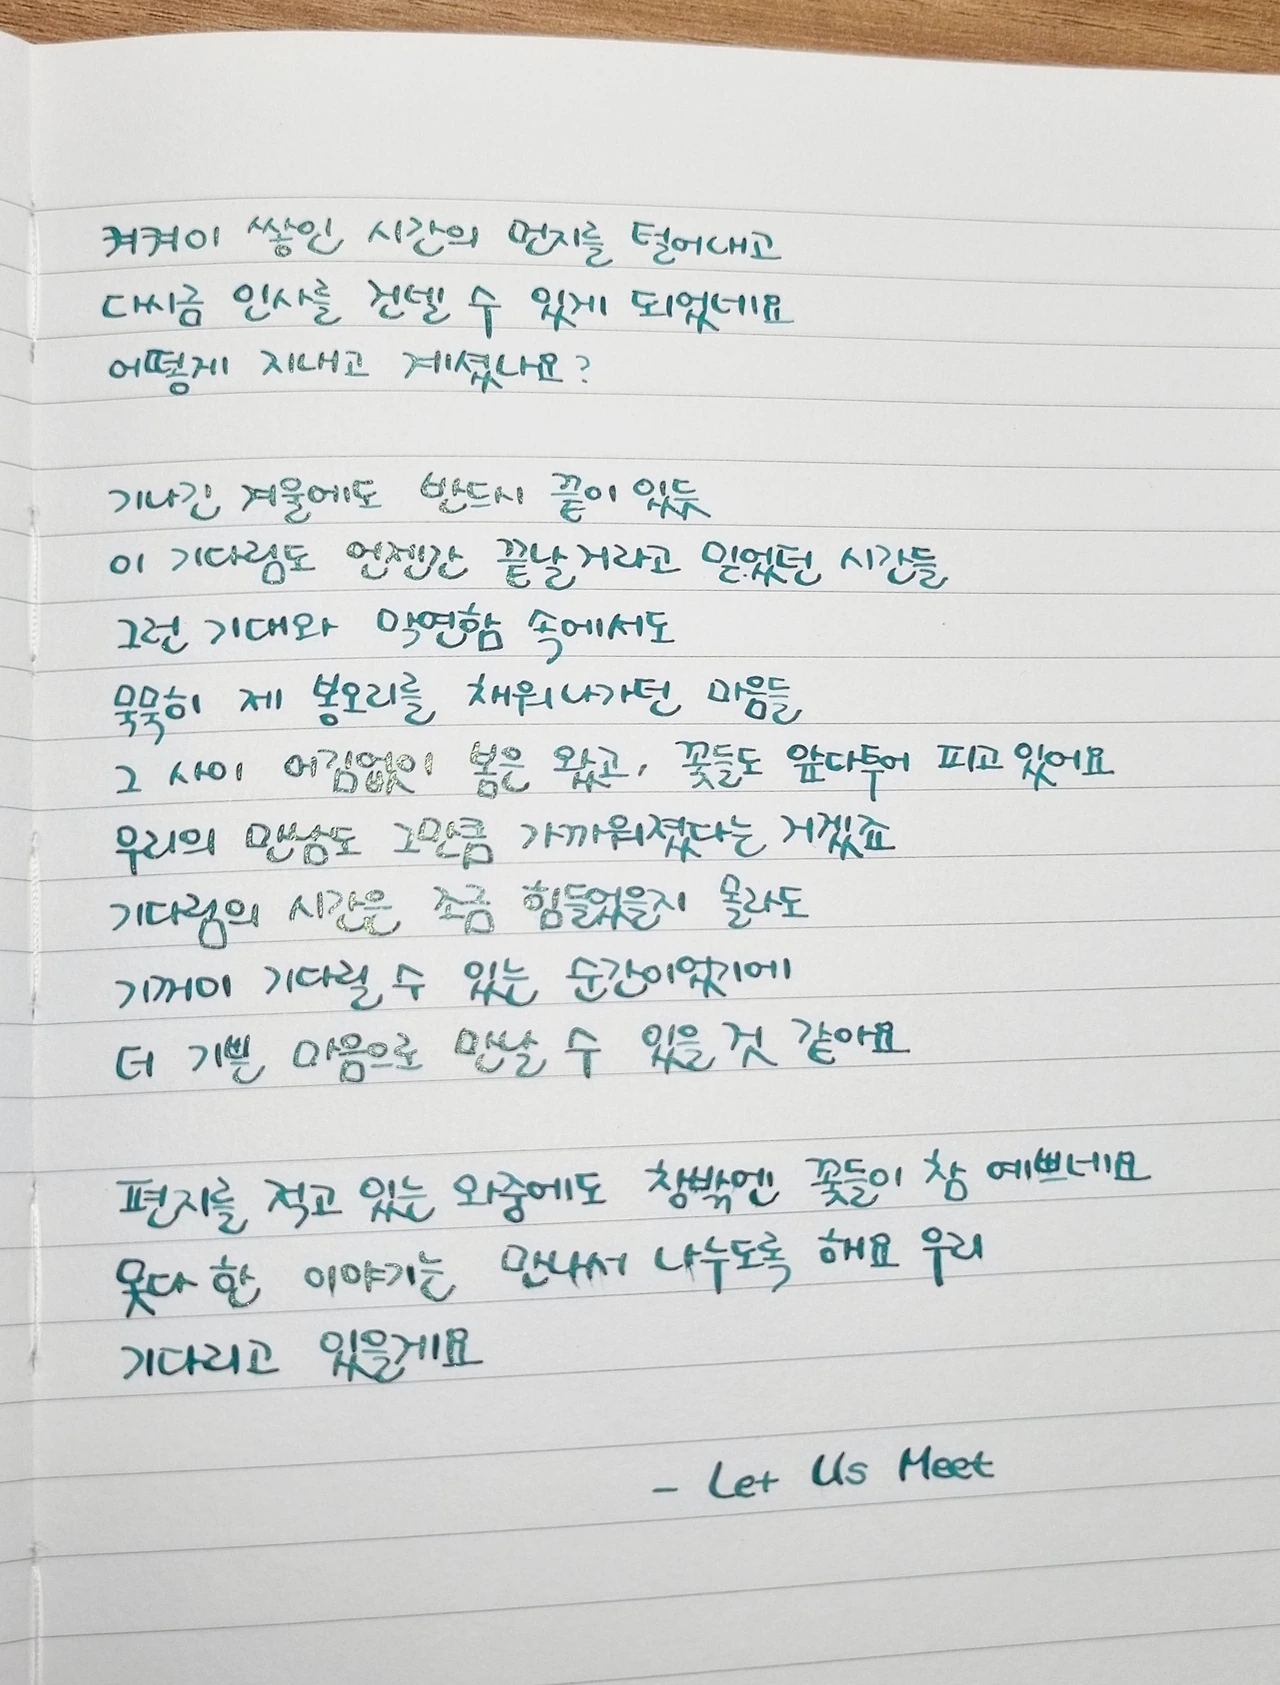 켜켜이 쌓인 시간의 먼지를 털어내고
다시금 인사를 건넬 수 있게 되었네요
어떻게 지내고 계셨나요?
기나긴 겨울에도 반드시 끝이 있듯
이 기다림도 언젠간 끝날거라고 믿었던 시간들
그런 기대와 막연함 속에서도
묵묵히 제 봉오리를 채워나가던 마음들
그 사이 어김없이 봄은 왔고, 꽃들도 앞다투어 피고 있어요
우리의 만남도 그만큼 가까워졌다는 거겠죠
기다림의 시간은 조금 힘들었을지 몰라도
기꺼이 기다릴 수 있는 순간이었기에
더 기쁜 마음으로 만날 수 있을 것 같아요
편지를 적고 있는 와중에도 창밖엔 꽃들이 참 예쁘네요
못다 한 이야기는 만나서 나누도록 해요 우리
기다리고 있을게요
- Let Us Meet